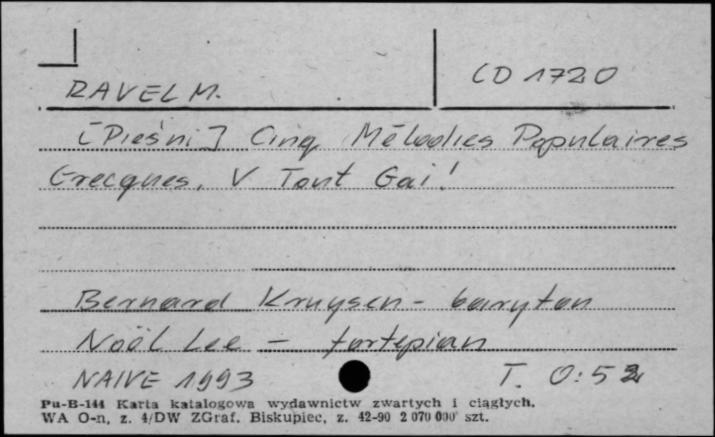 RAVEL M.
CD 1720
[Pieśni] Cinq Mélodies Populaires
Grecques. V Tout Gai!
Bernard Kruysen - baryton
Noël Lee - fortepian
NAIVE 1993
T. 0:52
Pu-B-144 Karta katalogowa wydawnictw zwartych i ciągłych.
WA O-n, z. 4/DW ZGraf. Biskupiec, z. 42-90 2 070 000 szt.